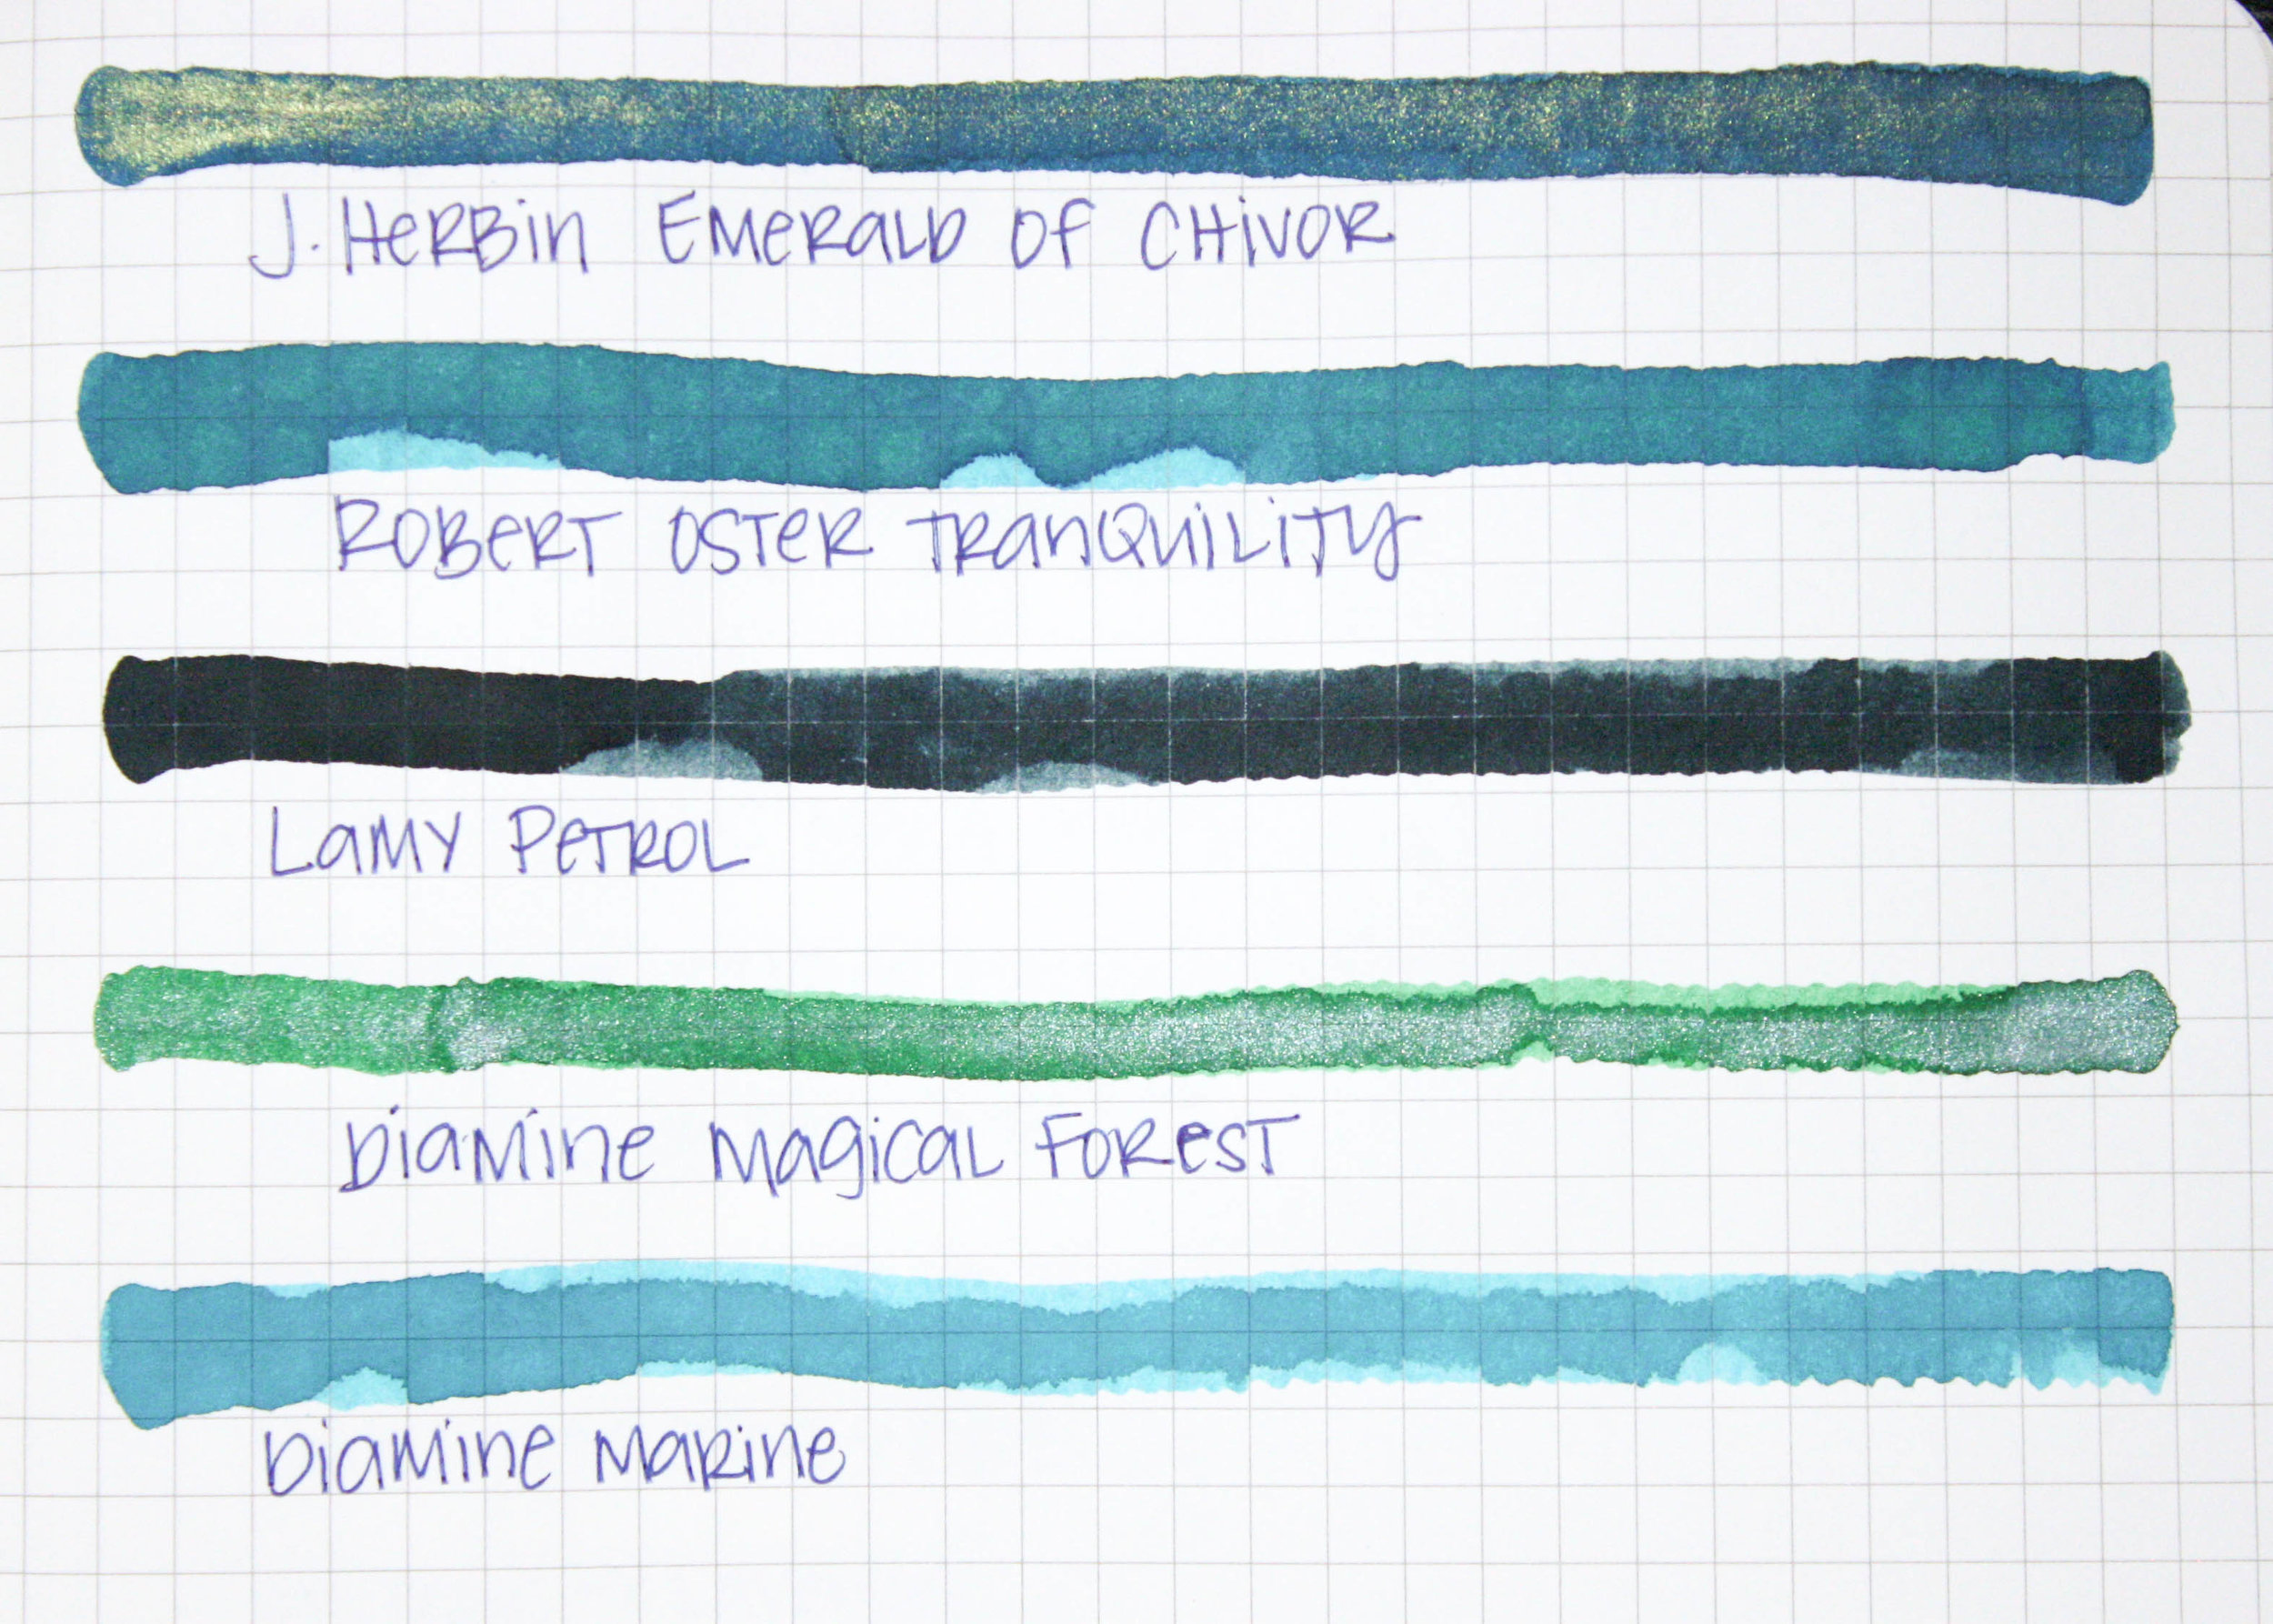 J. Herbin Emerald of Chivor
Robert Oster Tranquility
Lamy Petrol
Diamine Magical Forest
Diamine Marine